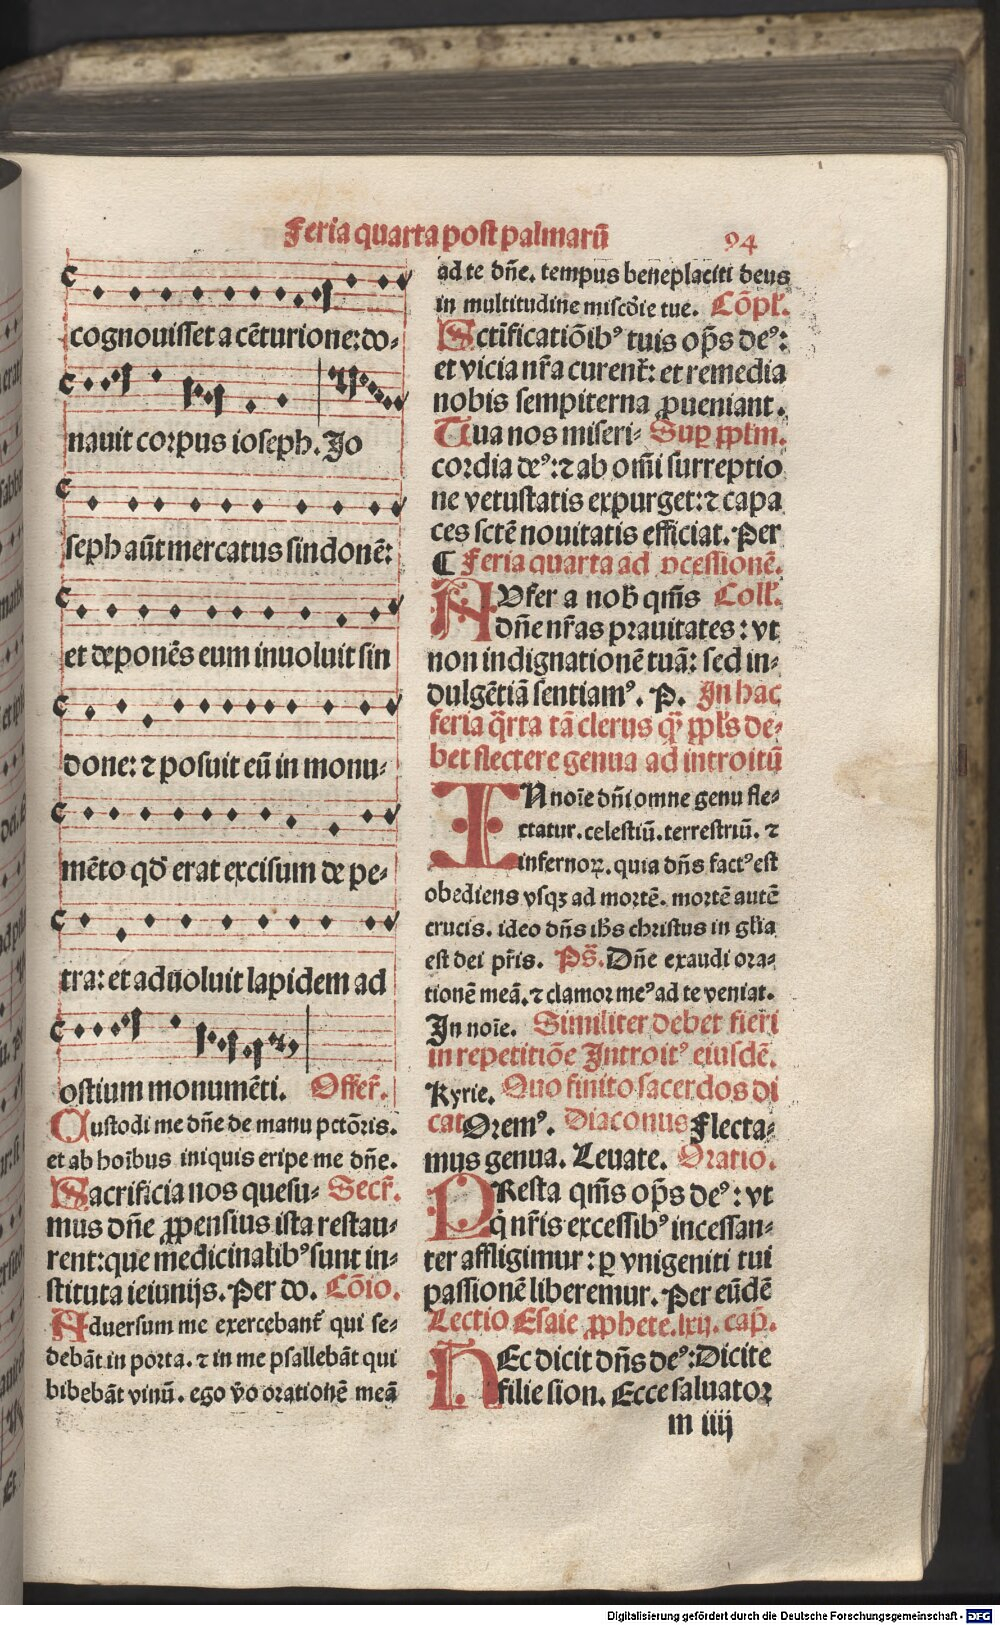 Feria quarta post palmarū
94
cognouisset a cēturione: do-
nauit corpus ioseph. Jo
seph aūt mercatus sindonē:
et deponēs eum inuoluit sin
done: ⁊ posuit eū in monu-
mēto qd̄ erat excisum de pe-
tra: et aduoluit lapidem ad
ostium monumēti. Offer̄.
Custodi me dn̄e de manu pctōris.
et ab hoībus iniquis eripe me dn̄e.
Sacrificia nos quesu- Secr̄.
mus dn̄e ꝓpensius ista restau-
rent: que medicinalibꝰ sunt in-
stituta ieiunijs. Per do. Cōio.
Aduersum me exercebant̄ qui se-
debāt in porta. ⁊ in me psallebāt qui
bibebāt vinū. ego v̄o orationē meā
ad te dn̄e. tempus beneplaciti deus
in multitudine miscōie tue. Cōpl̄.
Sctīficatiōibꝰ tuis op̄s deꝰ:
et vicia nr̄a curent̄: et remedia
nobis sempiterna ꝓueniant.
Tua nos miseri- Suꝑ ꝓplm̄.
cordia deꝰ: ⁊ ab om̄i surreptio
ne vetustatis expurget: ⁊ capa
ces sctē nouitatis efficiat. Per
¶ Feria quarta ad ꝓcessionē.
AUfer a nob̄ qm̄s Coll̄.
dn̄e nr̄as prauitates: vt
non indignationē tuā: sed in-
dulgētiā sentiamꝰ. P. In hac
feria q̄rta tā clerus q̄ꝫ ꝓpl̄s de-
bet flectere genua ad introitū
IN noīe dn̄i omne genu fle-
ctatur. celestiū. terrestriū. ⁊
infernoꝝ. quia dn̄s factꝰ est
obediens vsqꝫ ad mortē. mortē autē
crucis. ideo dn̄s ih̄s christus in gl̄ia
est dei pr̄is. Ps̄. Dn̄e exaudi ora-
tionē meā. ⁊ clamor meꝰ ad te veniat.
In noīe. Similiter debet fieri
in repetitiōe Introitꝰ eiusdē.
Kyrie. Quo finito sacerdos di
cat Oremꝰ. Diaconus Flecta-
mus genua. Leuate. Oratio.
PResta qm̄s op̄s deꝰ: vt
q̇ nr̄is excessibꝰ incessan-
ter affligimur: ꝑ vnigeniti tui
passionē liberemur. Per eūdē
Lectio Esaie ꝓphete. lxij. cap̄.
HEc dicit dn̄s deꝰ: Dicite
filie sion. Ecce saluator
m iiij
Digitalisierung gefördert durch die Deutsche Forschungsgemeinschaft - DFG